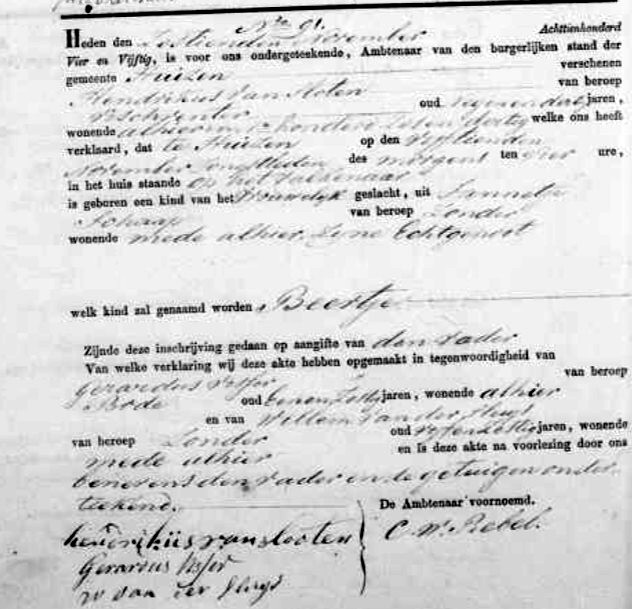 No. 91.
Heden den Zestienden November Achttienhonderd
Vier en Vijftig, is voor ons ondergeteekende, Ambtenaar van den burgerlijken stand der
gemeente Huizen verschenen
Hendrikus van Sloten van beroep
oud negenendertig jaren,
wonende alhier honderd zesendertig welke ons heeft
verklaard, dat te Huizen op den Vijftienden
November Jongstleden des morgens ten vier ure,
in het huis staande op het
is geboren een kind van het Vrouwelijk geslacht, uit Jannetje
Schaap van beroep Zonder
wonende mede alhier zyne Echtgenoot
welk kind zal genaamd worden, Beertje
Zijnde deze inschrijving gedaan op aangifte van den vader
Van welke verklaring wij deze akte hebben opgemaakt in tegenwoordigheid van
Gerardus Visser van beroep
Bode oud jaren, wonende alhier
en van Willem van der Sluys
van beroep Zonder oud jaren, wonende
mede alhier en is deze akte na voorlezing door ons
benevens den vader en de getuigen onder-
teekend.
De Ambtenaar voornoemd.
hendrikus van slooten
C. W. Rebel.
Gerardus Visser
W van der Sluys